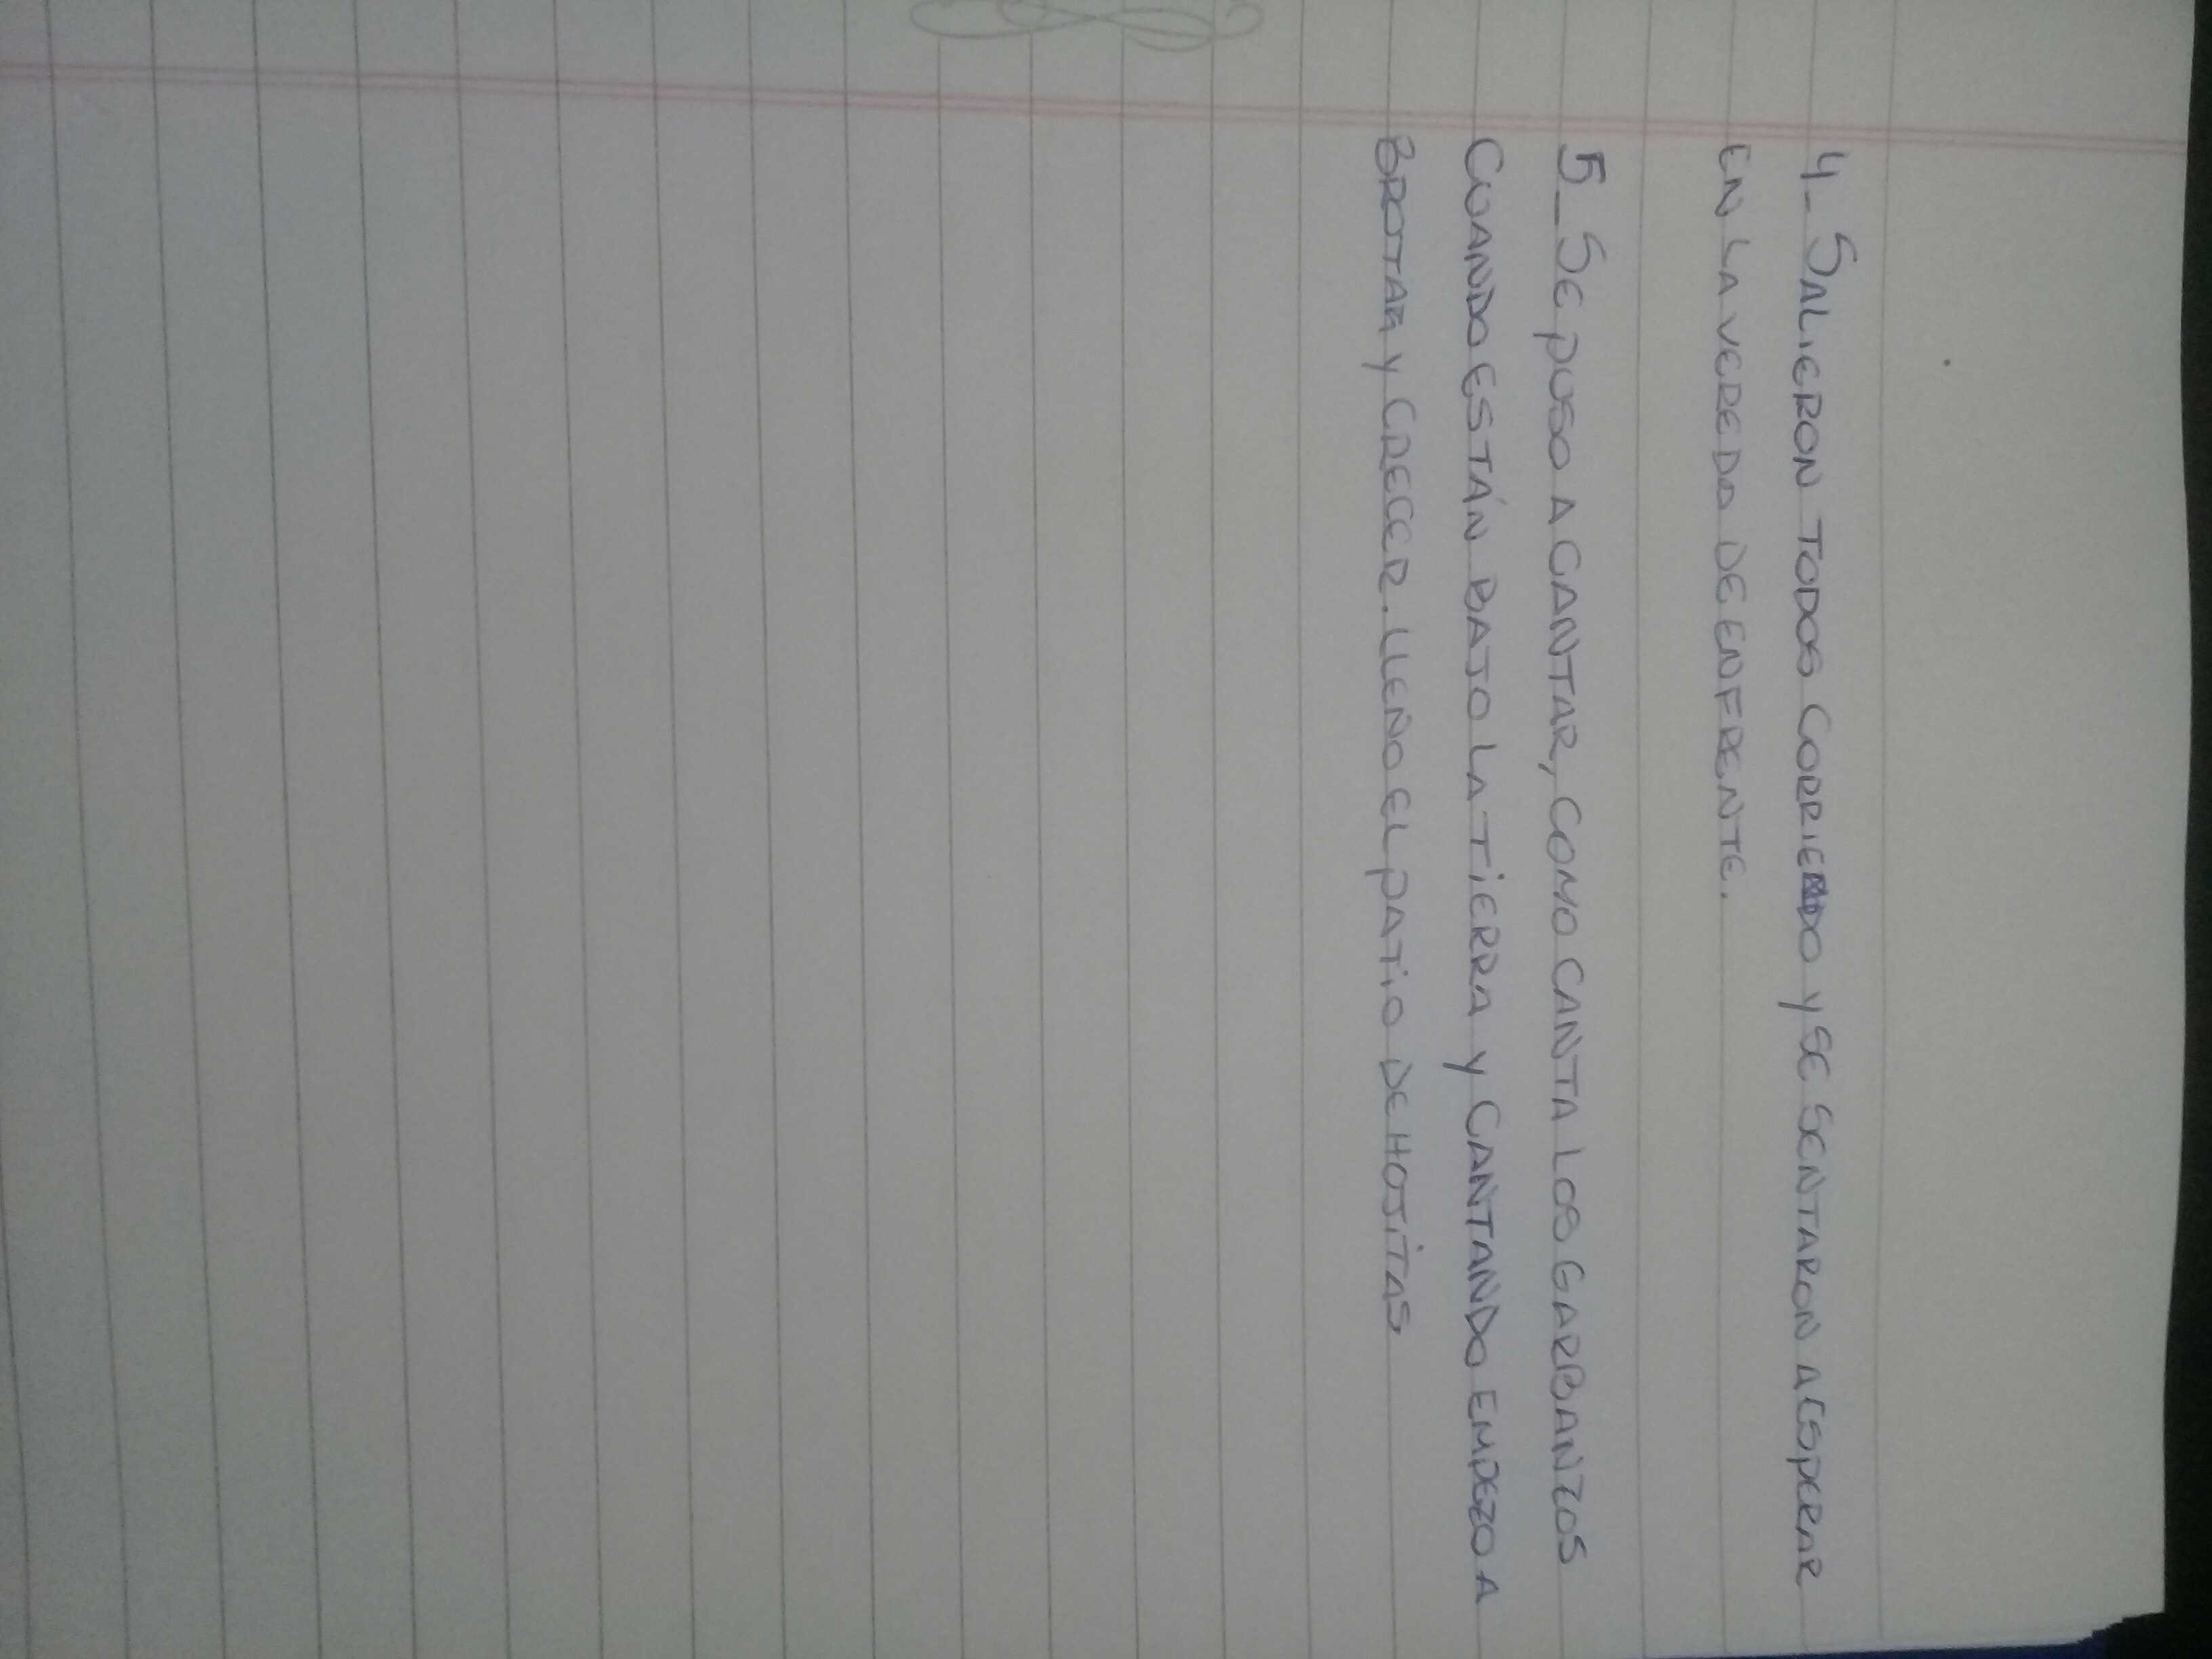 4_ SALIERON TODOS CORRIENDO Y SE SENTARON A ESPERAR
EN LA VEREDA DE ENFRENTE.
5_ SE PUSO A CANTAR, COMO CANTA LOS GARBANZOS
CUANDO ESTÁN BAJO LA TIERRA Y CANTANDO EMPEZO A
BROTAR Y CRECER. LLENO EL PATIO DE HOJITAS